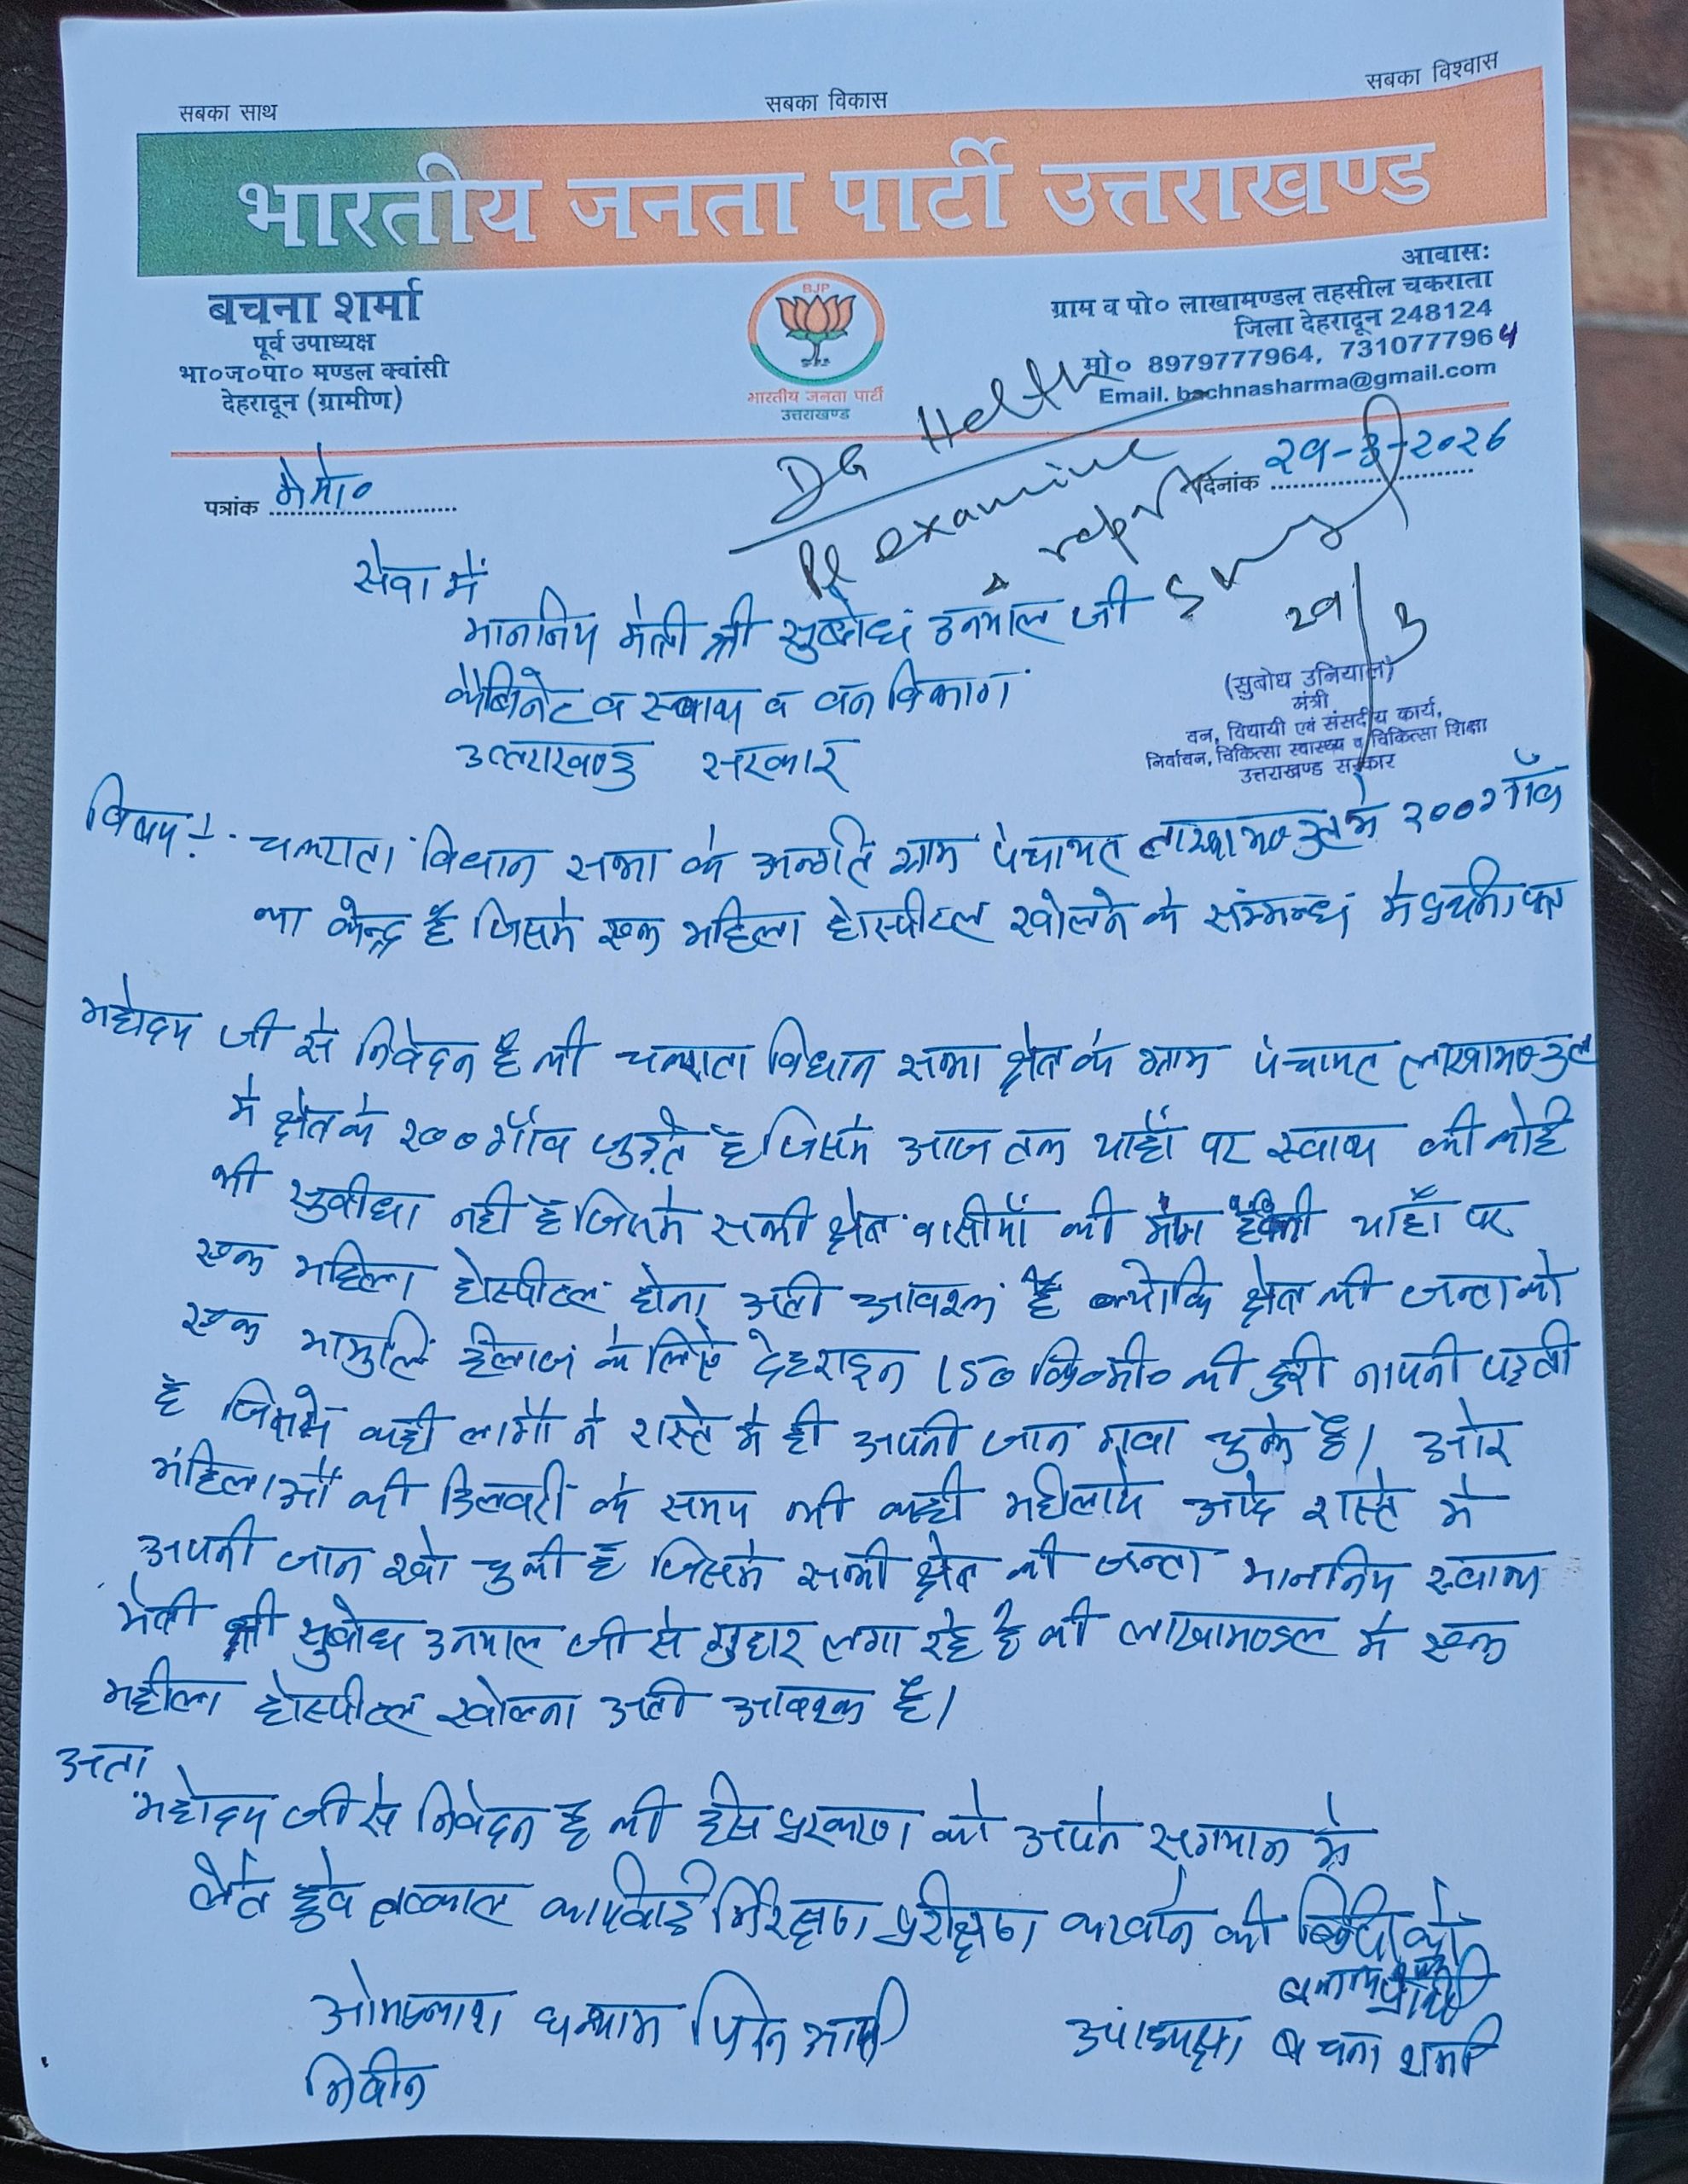 सबका साथ सबका विकास सबका विश्वास
भारतीय जनता पार्टी उत्तराखण्ड
बचना शर्मा
पूर्व उपाध्यक्ष
भा०ज०पा० मण्डल क्वांसी
देहरादून (ग्रामीण)
BJP
भारतीय जनता पार्टी
उत्तराखण्ड
आवास:
ग्राम व पो० लाखामण्डल तहसील चकराता
जिला देहरादून 248124
मो० 8979777964, 7310777964
Email. bachnasharma@gmail.com
पत्रांक मेमो०
दिनांक २१-३-२०२६
DG Helth
Pl examine
& report
२१/३
सेवा में
माननिय मंत्री श्री सुबोध उनयाल जी
कैबिनेट व स्वाथ व वन विभाग
उत्तराखण्ड सरकार
(सुबोध उनियाल)
मंत्री
वन, विधायी एवं संसदीय कार्य,
निर्वाचन, चिकित्सा स्वास्थ्य व चिकित्सा शिक्षा
उत्तराखण्ड सरकार
विषय:- चकराता विधान सभा के अन्र्गत ग्राम पंचायत लाखामण्डल मे २०० गाँव
का केन्द्र है जिसमे एक महिला होस्पीटल खोलने के संम्मन्ध मे प्रर्थना पत्र
महोदय जी से निवेदन है की चकराता विधान सभा क्षेत्र के ग्राम पंचायत लाखामण्डल
मे क्षेत्र के २०० गाँव जुड़ते है जिसमे आज तक याहाँ पर स्वाथ की कोई
भी सुवीधा नही है जिसमे सभी क्षेत्र वासीयों की माँग है की याहाँ पर
एक महिला होस्पीटल होना अती आवश्क है क्योकि क्षेत्र की जन्ता को
एक मामुलि ईलाज के लिए देहरादुन 150 कि०मी० की दुरी नापनी पड़ती
है जिसमे कही लोगों ने रास्ते मे ही अपनी जान गवा चुके है। ओर
महिलाओं की डिलवरी के समय भी कही महीलाये आदे रास्ते मे
अपनी जान खो चुकी है जिसमे सभी क्षेत्र की जन्ता माननिय स्वाथ्य
मंत्री श्री सुबोध उनयाल जी से गुहार लगा रहे है की लाखामण्डल मे एक
महीला होस्पीटल खोलना अती आवश्क है।
अता
महोदय जी से निवेदन है की ईस प्ररकरण को अपने सगयान मे
लेते हुवे तत्काल कार्यवाही निरिक्षण परीक्षण करवाने की
ओमप्रकाश
उपाध्यक्ष बचना शर्मा